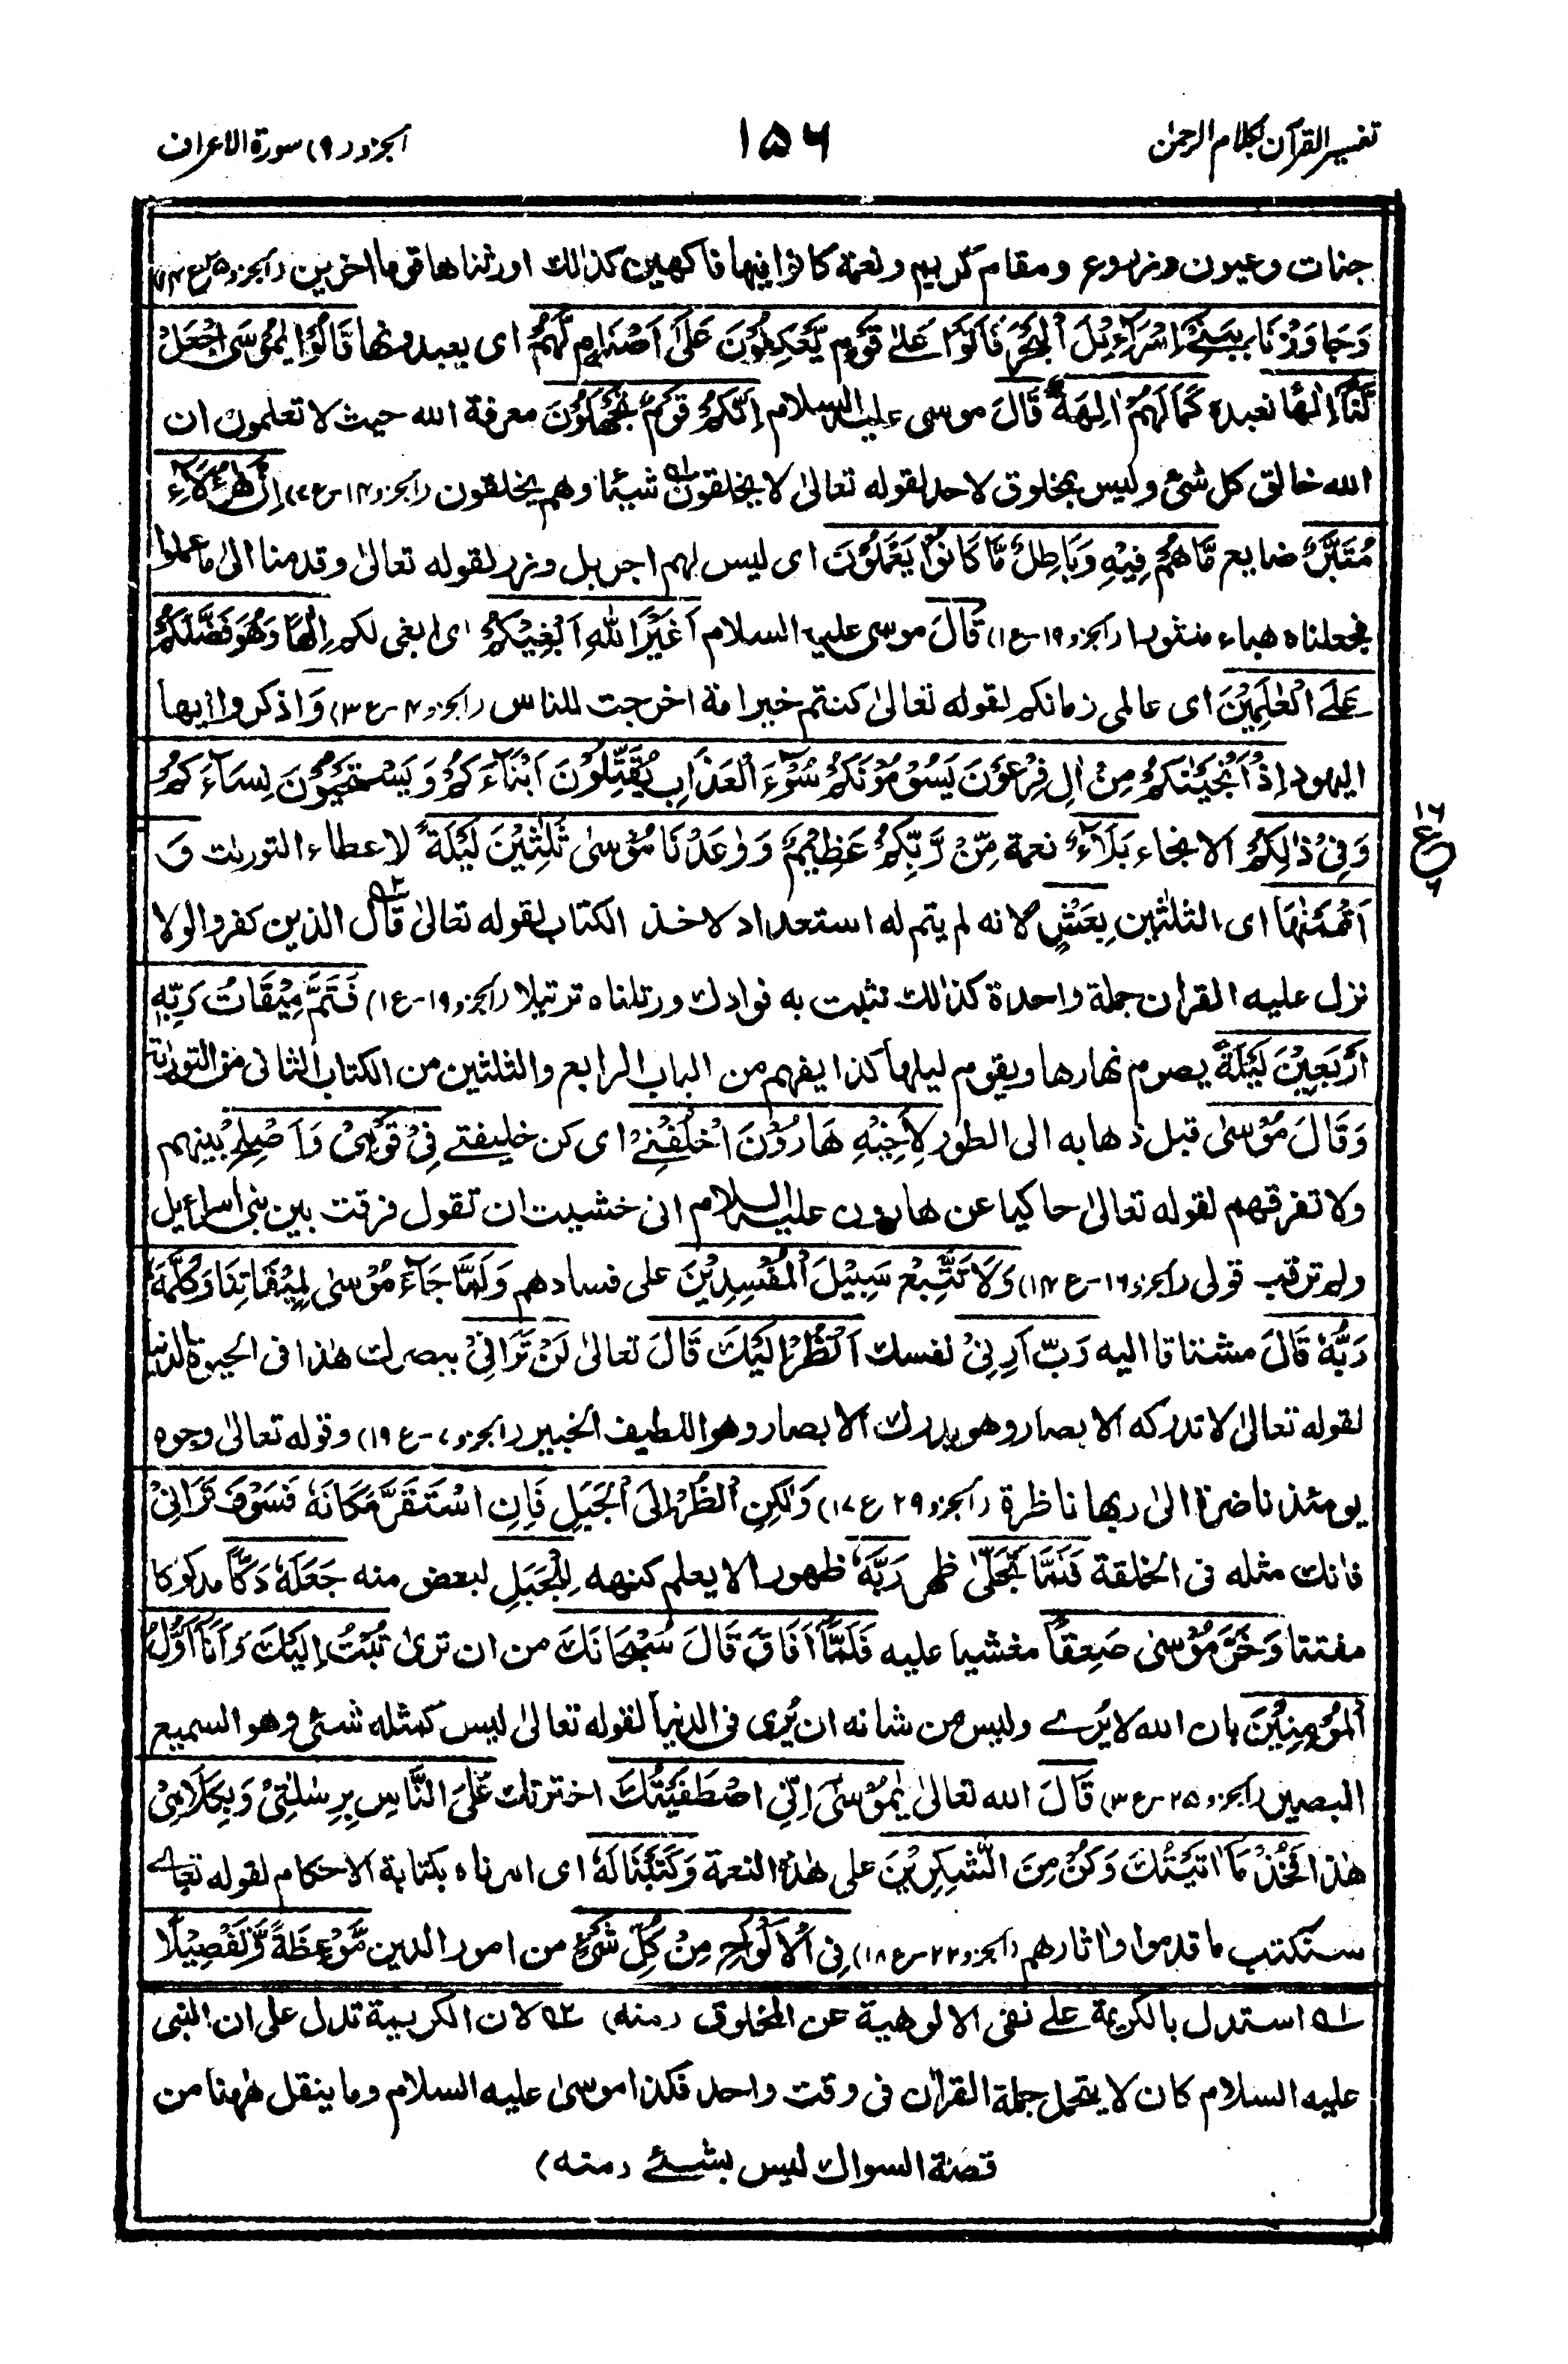 تفسير القرآن بكلام الرحمن
١٥٦
الجزو (٩) سورة الاعراف
جنات وعيون وزروع ومقام كريم ونعمة كانوا فيها فاكهين كذالك اورثناها قوما اخرين (الجزو ٢٥ ع ١٤)
وَجَاوَزْنَا بِبَنِيْٓ اِسْرَآءِيْلَ الْبَحْرَ فَاَتَوْا عَلٰى قَوْمٍ يَّعْكِفُوْنَ عَلٰٓى اَصْنَامٍ لَّهُمْ اى يعبدونها قَالُوْا يٰمُوْسَى اجْعَلْ
لَّنَآ اِلٰهًا نعبده كَمَا لَهُمْ اٰلِهَةٌ قَالَ موسى عليه السلام اِنَّكُمْ قَوْمٌ تَجْهَلُوْنَ معرفة الله حيث لا تعلمون ان
الله خالق كل شئ وليس بمخلوق لاحد لقوله تعالىٰ لا يخلقون ١ه شيئا وهم يخلقون (الجزو ١٤-ع ٨) اِنَّ هٰٓؤُلَآءِ
مُتَبَّرٌ ضايع مَّا هُمْ فِيْهِ وَبَاطِلٌ مَّا كَانُوْا يَعْمَلُوْنَ اى ليس لهم اجر بل وزر لقوله تعالىٰ وقدمنا الىٰ ما عملوا
فجعلناه هباء منثورا (الجزو ١٩-ع ١) قَالَ موسى عليه السلام اَغَيْرَ اللهِ اَبْغِيْكُمْ اى ابغى لكم اِلٰهًا وَهُوَ فَضَّلَكُمْ
عَلَى الْعٰلَمِيْنَ اى عالمى زمانكم لقوله تعالىٰ كنتم خير امة اخرجت للناس (الجزو ٤-ع ٣) وَاذكروا ايها
اليهود اِذْ اَنْجَيْنٰكُمْ مِنْ اٰلِ فِرْعَوْنَ يَسُوْمُوْنَكُمْ سُوْٓءَ الْعَذَابِ يُقَتِّلُوْنَ اَبْنَآءَكُمْ وَيَسْتَحْيُوْنَ نِسَآءَكُمْ
وَفِيْ ذٰلِكُمْ الانجاء بَلَآءٌ نعمة مِّنْ رَّبِّكُمْ عَظِيْمٌ وَوٰعَدْنَا مُوْسٰى ثَلٰثِيْنَ لَيْلَةً لاعطاء التورىٰت وَ
١٦ ع ٦
اَتْمَمْنٰهَا اى الثلثين بِعَشْرٍ لانه لم يتم له استعداد لاخذ الكتاب لقوله تعالىٰ ٢ه قال الذين كفروا لولا
نزل عليه القران جملة واحدة كذالك نثبت به فوادك ورتلناه ترتيلا (الجزو ١٩-ع ١) فَتَمَّ مِيْقَاتُ رَبِّهٖٓ
اَرْبَعِيْنَ لَيْلَةً يصوم نهارها ويقوم ليلها كذا يفهم من الباب الرابع والثلثين من الكتاب الثانى من التوراة
وَقَالَ مُوْسٰى قبل ذهابه الى الطور لِاَخِيْهِ هَارُوْنَ اخْلُفْنِيْ اى كن خليفتے فِيْ قَوْمِيْ وَاَصْلِحْ بينهم
ولا تفرقهم لقوله تعالىٰ حاكيا عن هارون عليه السلام انى خشيت ان تقول فرقت بين بنى اسراءيل
ولم ترقب قولى (الجزو ١٦-ع ١٤) وَلَا تَتَّبِعْ سَبِيْلَ الْمُفْسِدِيْنَ على فسادهم وَلَمَّا جَآءَ مُوْسٰى لِمِيْقَاتِنَا وَكَلَّمَهٗ
رَبُّهٗ قَالَ مشتاقا اليه رَبِّ اَرِنِيْٓ نفسك اَنْظُرْ اِلَيْكَ قَالَ تعالىٰ لَنْ تَرَانِيْ ببصرك هٰذا فى الحيوة الدنيا
لقوله تعالىٰ لا تدركه الابصار وهو يدرك الابصار وهو اللطيف الخبير (الجزو ٧-ع ١٩) وقوله تعالىٰ وجوه
يومئذ ناضرة الىٰ ربها ناظرة (الجزو ٢٩ ع ١٧) وَلٰكِنِ انْظُرْ اِلَى الْجَبَلِ فَاِنِ اسْتَقَرَّ مَكَانَهٗ فَسَوْفَ تَرَانِيْ
فانك مثله فى الخلقة فَلَمَّا تَجَلّٰى ظهر رَبُّهٗ ظهورا لا يعلم كنهه لِلْجَبَلِ لبعض منه جَعَلَهٗ دَكًّا مدكوكا
مفتتا وَخَرَّ مُوْسٰى صَعِقًا مغشيا عليه فَلَمَّآ اَفَاقَ قَالَ سُبْحَانَكَ من ان ترىٰ تُبْتُ اِلَيْكَ وَاَنَا اَوَّلُ
الْمُؤْمِنِيْنَ بان الله لا يُرٰے وليس من شانه ان يُرى فى الدنيا لقوله تعالىٰ ليس كمثله شئ وهو السميع
البصير (الجزو ٢٥-ع ٣) قَالَ الله تعالىٰ يٰمُوْسٰٓى اِنِّى اصْطَفَيْتُكَ اخترتك عَلَى النَّاسِ بِرِسٰلٰتِيْ وَبِكَلَامِيْ
هٰذا فَخُذْ مَآ اٰتَيْتُكَ وَكُنْ مِنَ الشّٰكِرِيْنَ على هٰذه النعمة وَكَتَبْنَا لَهٗ اى امرناه بكتابة الاحكام لقوله تعالے
سنكتب ما قدموا واٰثارهم (الجزو ٢٢-ع ١٨) فِى الْاَلْوَاحِ مِنْ كُلِّ شَيْءٍ من امور الدين مَّوْعِظَةً وَّتَفْصِيْلًا
١ه استدل بالكريمة علے نفى الالوهية عن المخلوق (منه) ٢ه لان الكريمة تدل على ان النبى
عليه السلام كان لا يتحمل جملة القرآن فى وقت واحد فكذا موسىٰ عليه السلام وما ينقل هٰهنا من
قصة السواك ليس بشئے (منه)